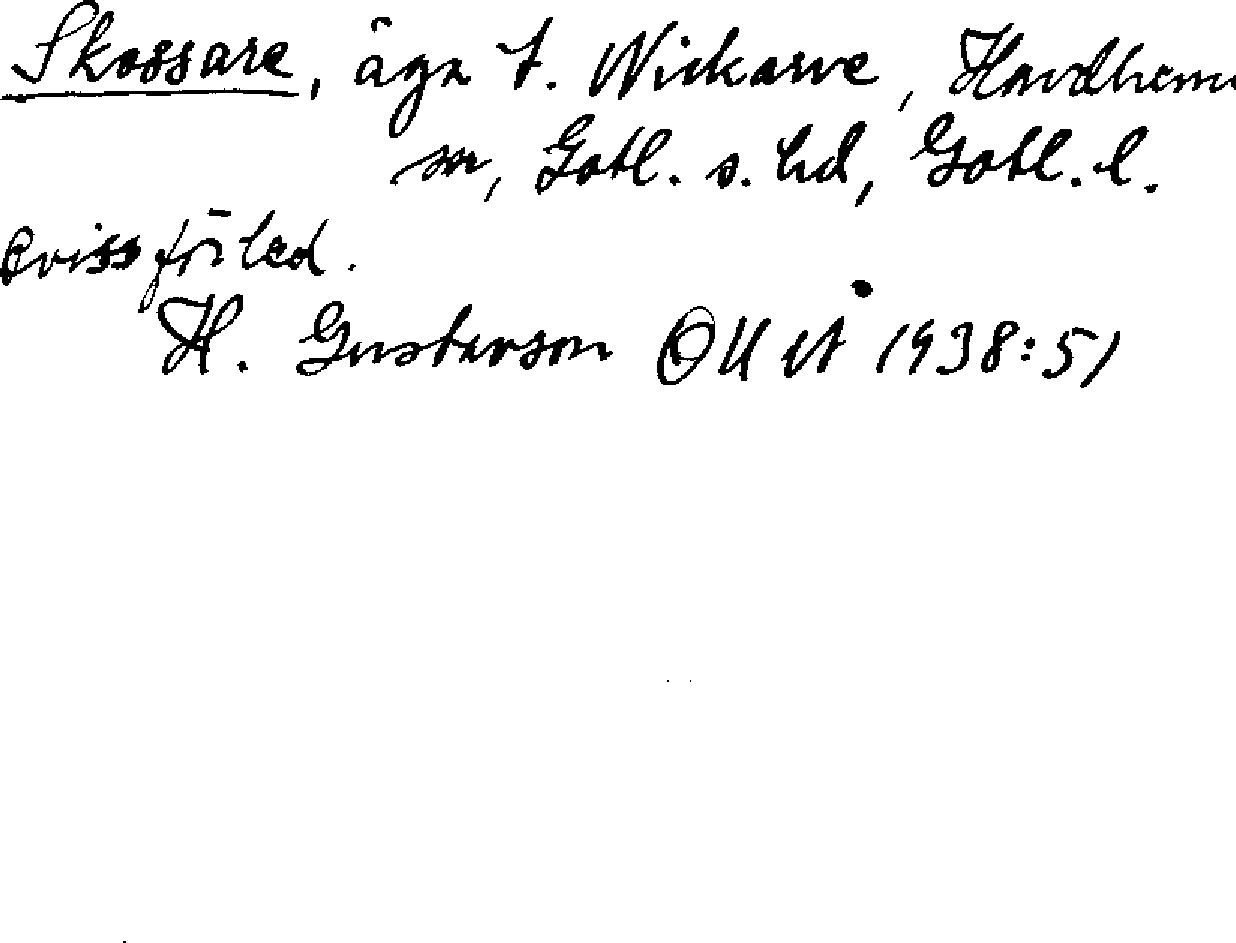 Skossare, äga t. Wickarve, Havdhem
sn, Gotl. s. hd, Gotl. l.
Ovissförled.
H. Gustavson 1938:51